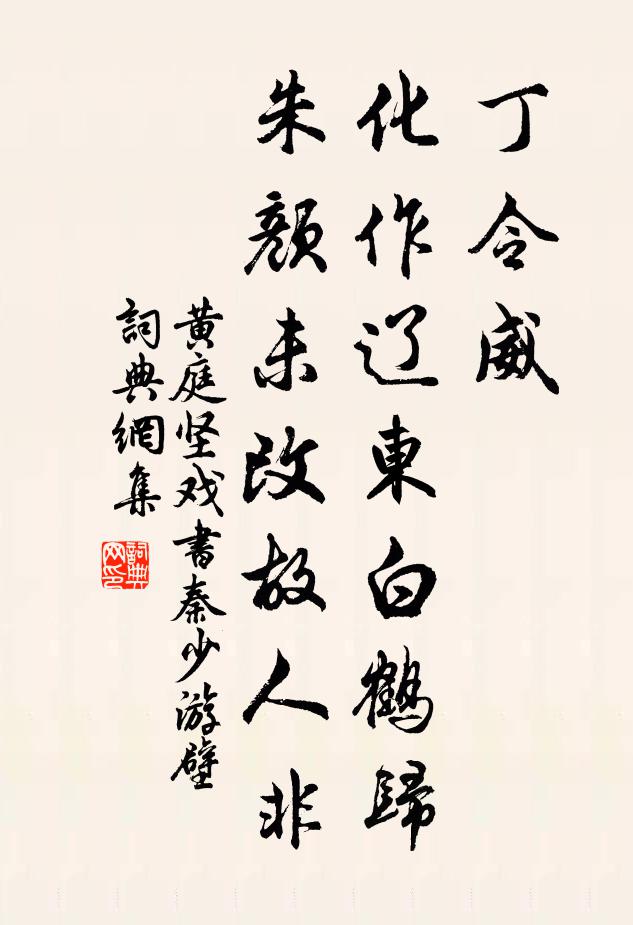 丁令威
化作辽東白鶴歸
朱顏未改故人非
黃庭坚戏書秦少游壁
詞典網集
詞典
网印